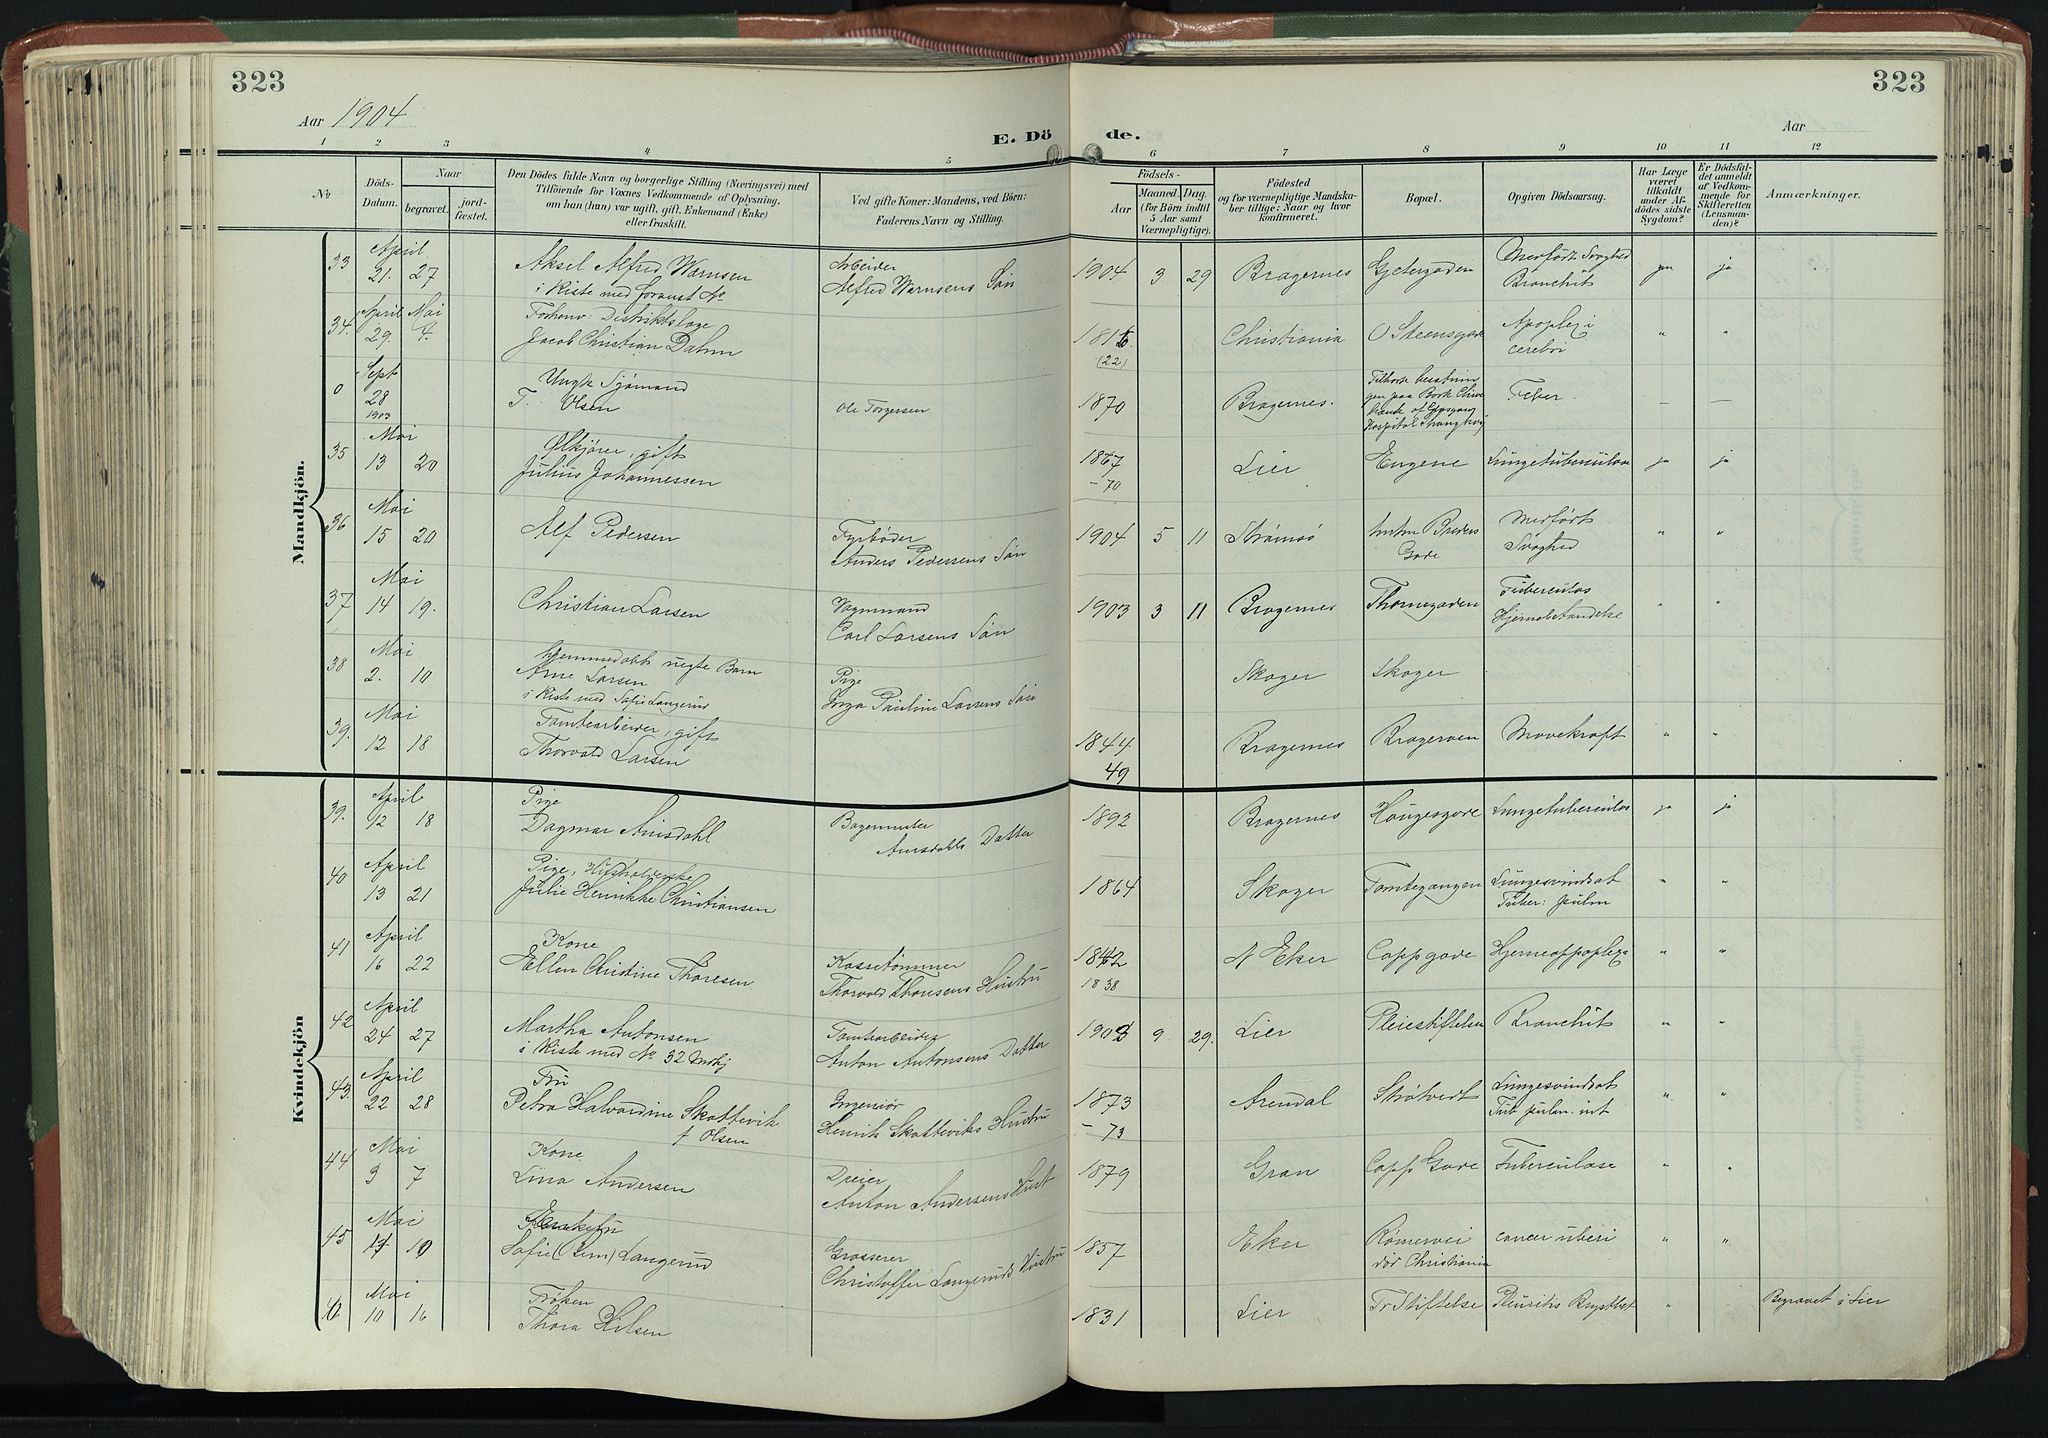 323
323
Aar 1904
E. Dö de.
Aar
1 2 3 4 5 6 7 8 9 10 11 12
No
Döds-
Datum.
Naar
begravet.
jord-
fæstet.
Den Dödes fulde Navn og borgerlige Stilling (Næringsvei) med
Tilföiende for Voxnes Vedkommende af Oplysning,
om han (hun) var ugift, gift, Enkemand (Enke)
eller fraskilt.
Ved gifte Koner: Mandens, ved Börn:
Faderens Navn og Stilling.
Födsels-
Aar
Maaned. Dag.
(for Börn indtil
5 Aar samt
Værnepligtige).
Födested
og for værnepligtige Mandska-
ber tillige: Naar og hvor
konfirmeret.
Bopæl.
Opgiven Dödsaarsag.
Har Læge
været
tilkaldt
under Af-
dödes sidste
Sygdom?
Er Dödsfal-
det anmeldt
af Vedkom-
mende for
Skifteretten
(Lensman-
den)?
Anmærkninger.
Mandkjön.
33 April
21. 27 Aksel Alfred Warnsen
i Kiste med foranst No
Arbeider
Alfred Warnsens Søn
1904 3 29 Bragernes Gjetergaden Medfødt Svaghed
Bronchit ja ja
34. April Mai
29. 4. Forhenv: Distriktslæge
Jacob Christian Dahm
1816.
(22) Christiania O Steensgade Apoplexi
cerebri " "
0 Sept
28
1903 Ungk Sjømand
T. Olsen Ole Torgersen 1870 Bragernes.
Hospital Feber. — —
35 Mai
13 20 Ølkjører, gift
Julius Johannessen 1867
- 70 Lier Engene Lungetuberculose ja ja
36 Mai
15 20 Alf Pedersen Fyrbøder
Anders Pedersens Søn 1904 5 11 Strømsø
Gade Medfødt
Svaghed " "
37 Mai
14 19. Christian Larsen Vognmand
Carl Larsens Søn 1903 3 11 Bragernes Thornegaden Tuberculos
Hjernebetændelse " "
38 Mai
2. 10 hjemmedøbt uegte Barn
Arne Larsen
i Kiste med Sofie Langerud
Pige
Inga Pauline Larsens Søn Skoger Skoger
39. Mai
12 18 Tomtearbeider, gift
Thorvald Larsen 1844
49 Bragernes Brageroen Mavekræft " "
Kvindekjön
39. April
12 18 Pige
Dagmar Amsdahl Bogermester
Amsdahls Datter 1892 Bragernes Haugesgade Lungetuberculos ja ja
40 April
13 21 Pige, Husholderske
Julie Henrikke Christiansen 1864 Skoger Tomtegangen Lungesvindsot
Tuber: pulm " "
41 April
16 22 Kone
Ellen Christine Thoresen Kassetømmer
Thorvald Thoresens Hustru 1842
1838 N Eker Cappgade Hjerneappoplexi " "
42 April
24 27 Martha Antonsen
i Kiste med No 32 Mdkj
Tomtearbeider
Anton Antonsens Datter 1903 9 29. Lier Pleiestiftelsen Bronchit " "
43. April
22 28 Fru
Petra Halvardine Skottevik
f Olsen Ingeniør
Henrik Skotteviks Hustru 1873
- 73 Arendal Strøtvedt Lungesvindsot
Tub pulm. int " "
44 Mai
3 7 Kone
Lina Andersen Dreier
Anton Andersens Hust 1879 Gran Capp. Gade Tuberculose " "
45 Mai
10 Enkefru
Sofie Langerud Grosserer
Christoffer Langeruds Hustru 1857 Eker
Christiania cancer uberi " "
46 Mai
10 16 Frøken
Thora Hilsen 1831 Lier Tr Stiftelse Pleuritis Brystbet " Begravet i Lier